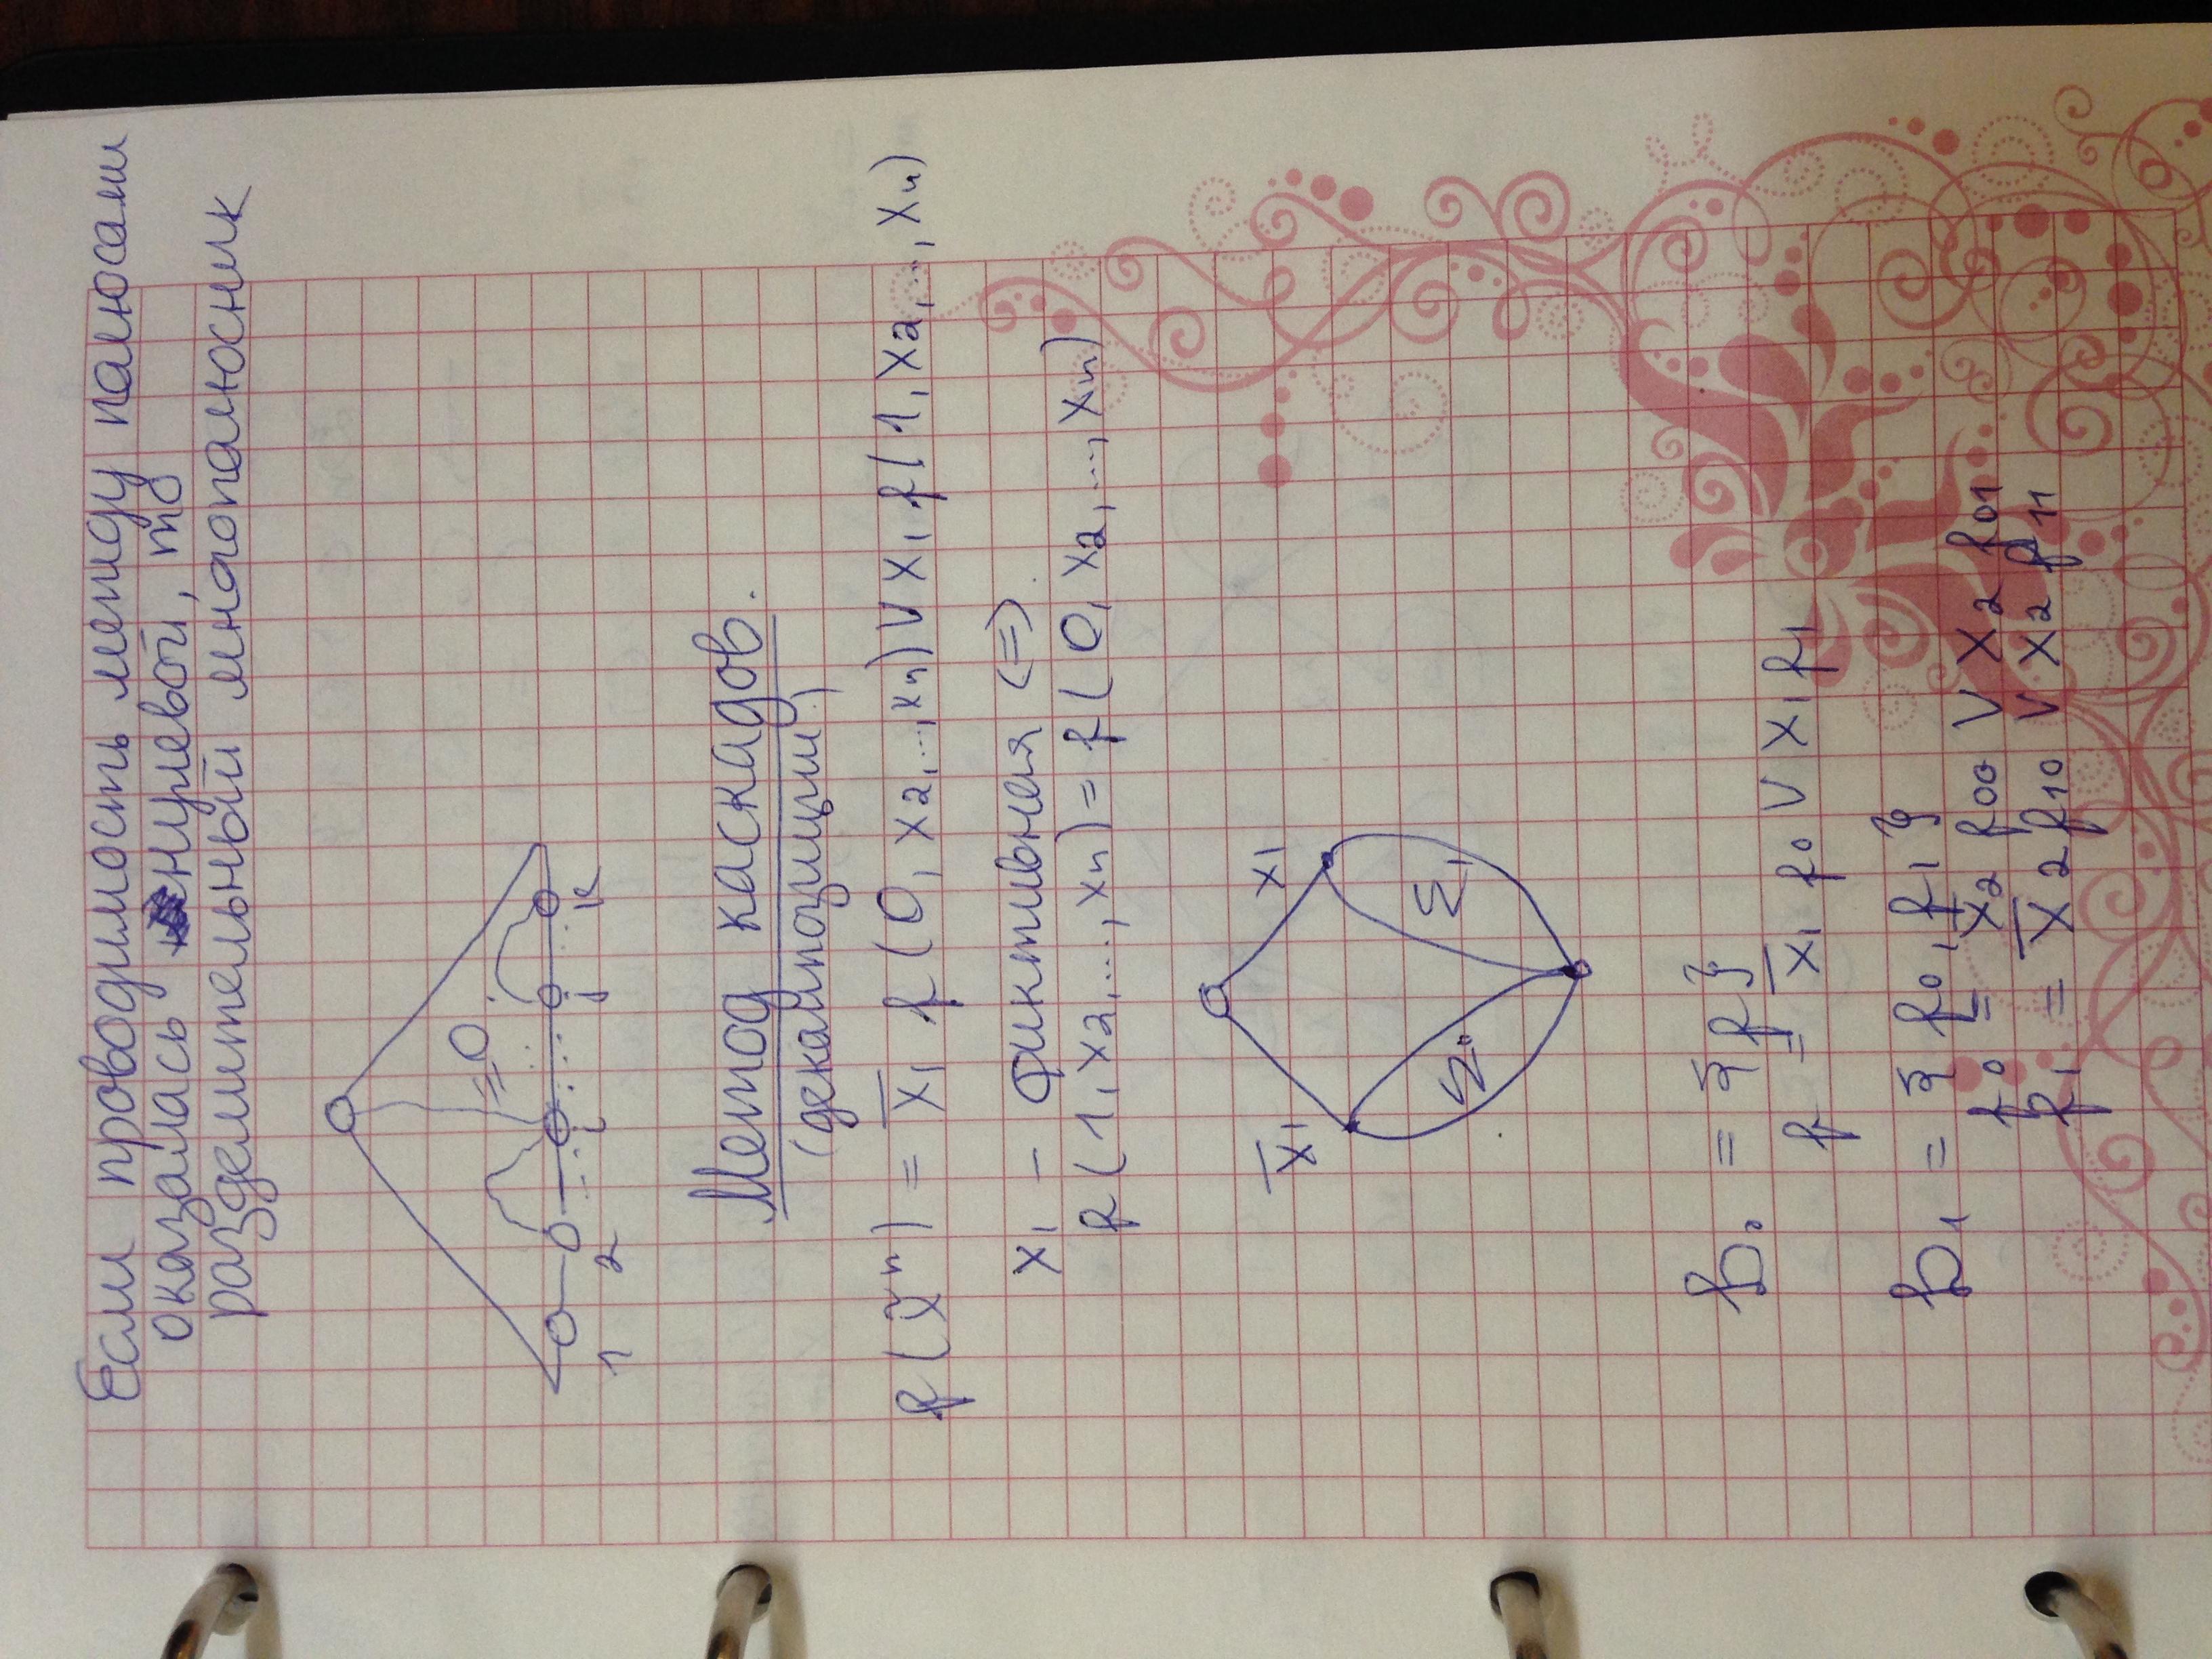 Если проводимость между полюсами
оказалась нулевой, то
разделительный многополюсник
=0
1 2 ... i ... j ... k
Метод каскадов.
(декомпозиции)
f(x̃ⁿ) = x̄₁ f(0, x₂,...,xₙ) V x₁ f(1, x₂,...,xₙ)
x₁ – фиктивная (=)
f(1, x₂,...,xₙ) = f(0, x₂,...,xₙ)
x̄₁ x₁
Σ₀ Σ₁
𝔇₀ = {f}
f = x̄₁ f₀ V x₁ f₁
𝔇₁ = {f₀, f₁}
f₀ = x̄₂ f₀₀ V x₂ f₀₁
f₁ = x̄₂ f₁₀ V x₂ f₁₁